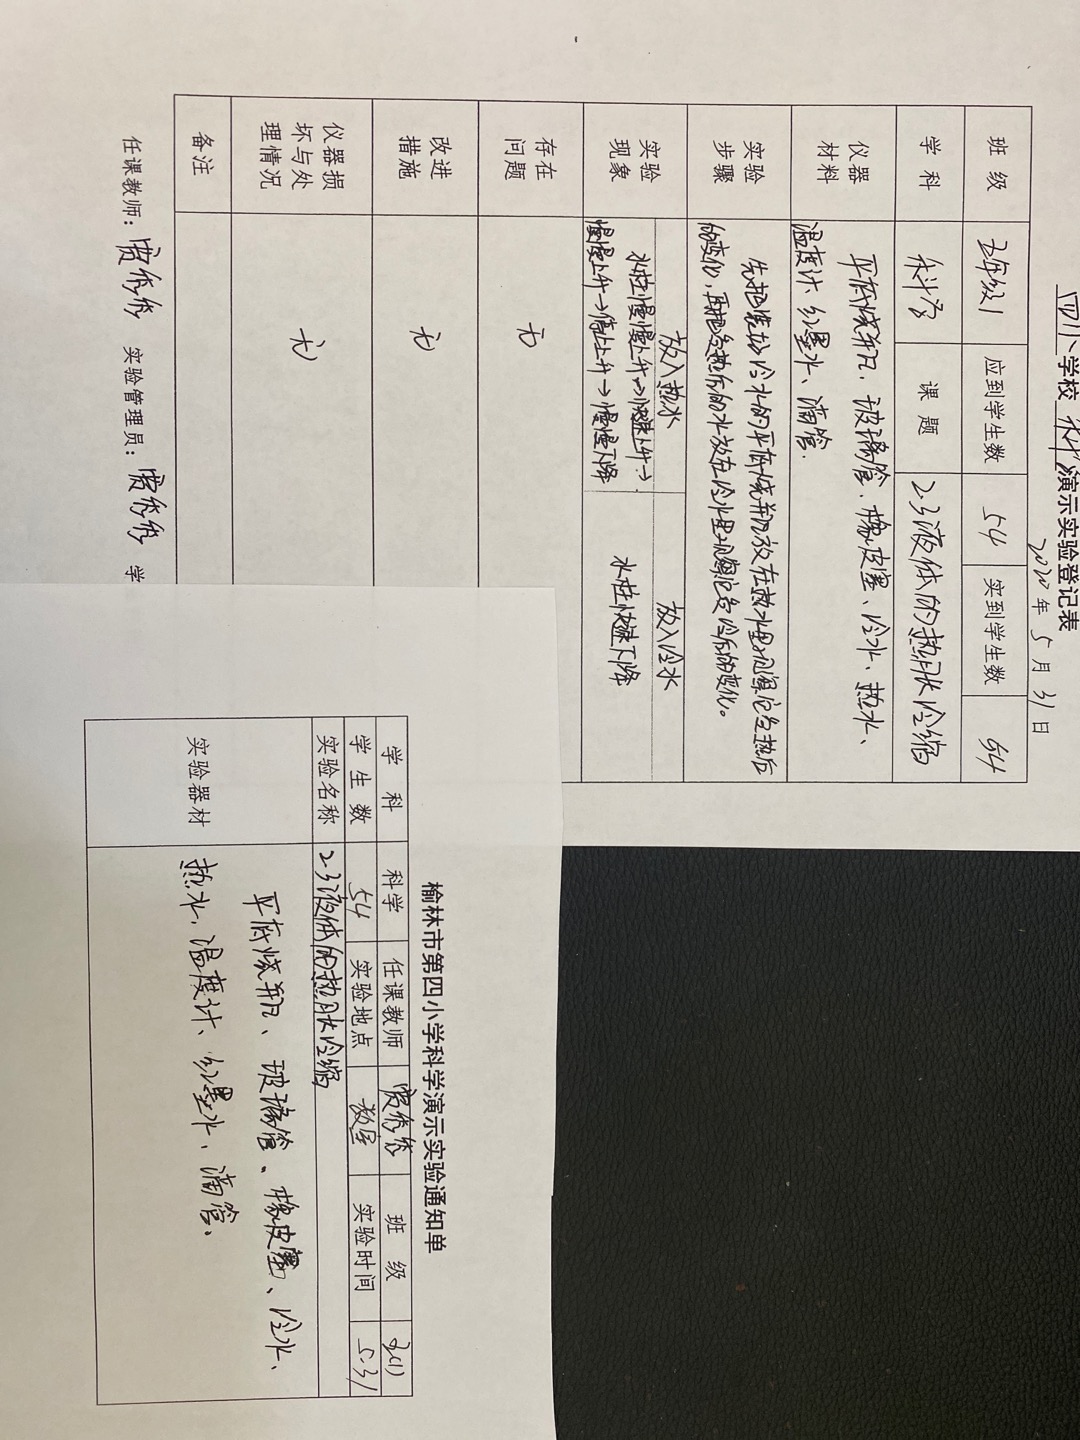 四小学校 科学演示实验登记表
2020年5月31日
班级 五年级1 应到学生数 54 实到学生数 54
学科 科学 课题 2.3液体的热胀冷缩
仪器材料 平底烧瓶、玻璃管、橡皮塞、冷水、热水、
温度计、红墨水、滴管.
实验步骤 先把装好冷水的平底烧瓶放在热水里观察它受热后
的变化,再把受热后的水放在冷水里观察它受冷后的变化。
实验现象 放入热水 放入冷水
水柱慢慢上升→快速上升→ 水柱快速下降
慢慢上升→停止上升→慢慢下降
存在问题 无
改进措施 无
仪器损坏与处理情况 无
备注
任课教师: 贾秀秀 实验管理员: 贾秀秀 学
榆林市第四小学科学演示实验通知单
学科 科学 任课教师 贾秀秀 班级 五(1)
学生数 54 实验地点 教室 实验时间 5.31
实验名称 2.3液体的热胀冷缩
实验器材 平底烧瓶、玻璃管、橡皮塞、冷水、
热水、温度计、红墨水、滴管。